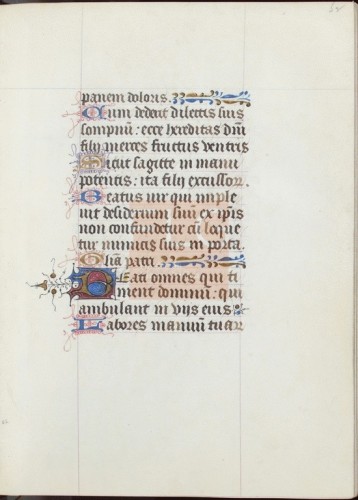 panem doloris.
Cum dederit dilectis suis
sompnū: ecce hereditas dnī
filij merces fructus ventris
Sicut sagitte in manu
potentis: ita filij excussor.
Beatus uir qui imple
uit desiderium suū ex ipsis
non confundetur cū loque
tur inimicis suis in porta.
Glīa patri.
Beati omnes qui ti
ment dominū: qui
ambulant in vijs eius.
Labores manuū tuar